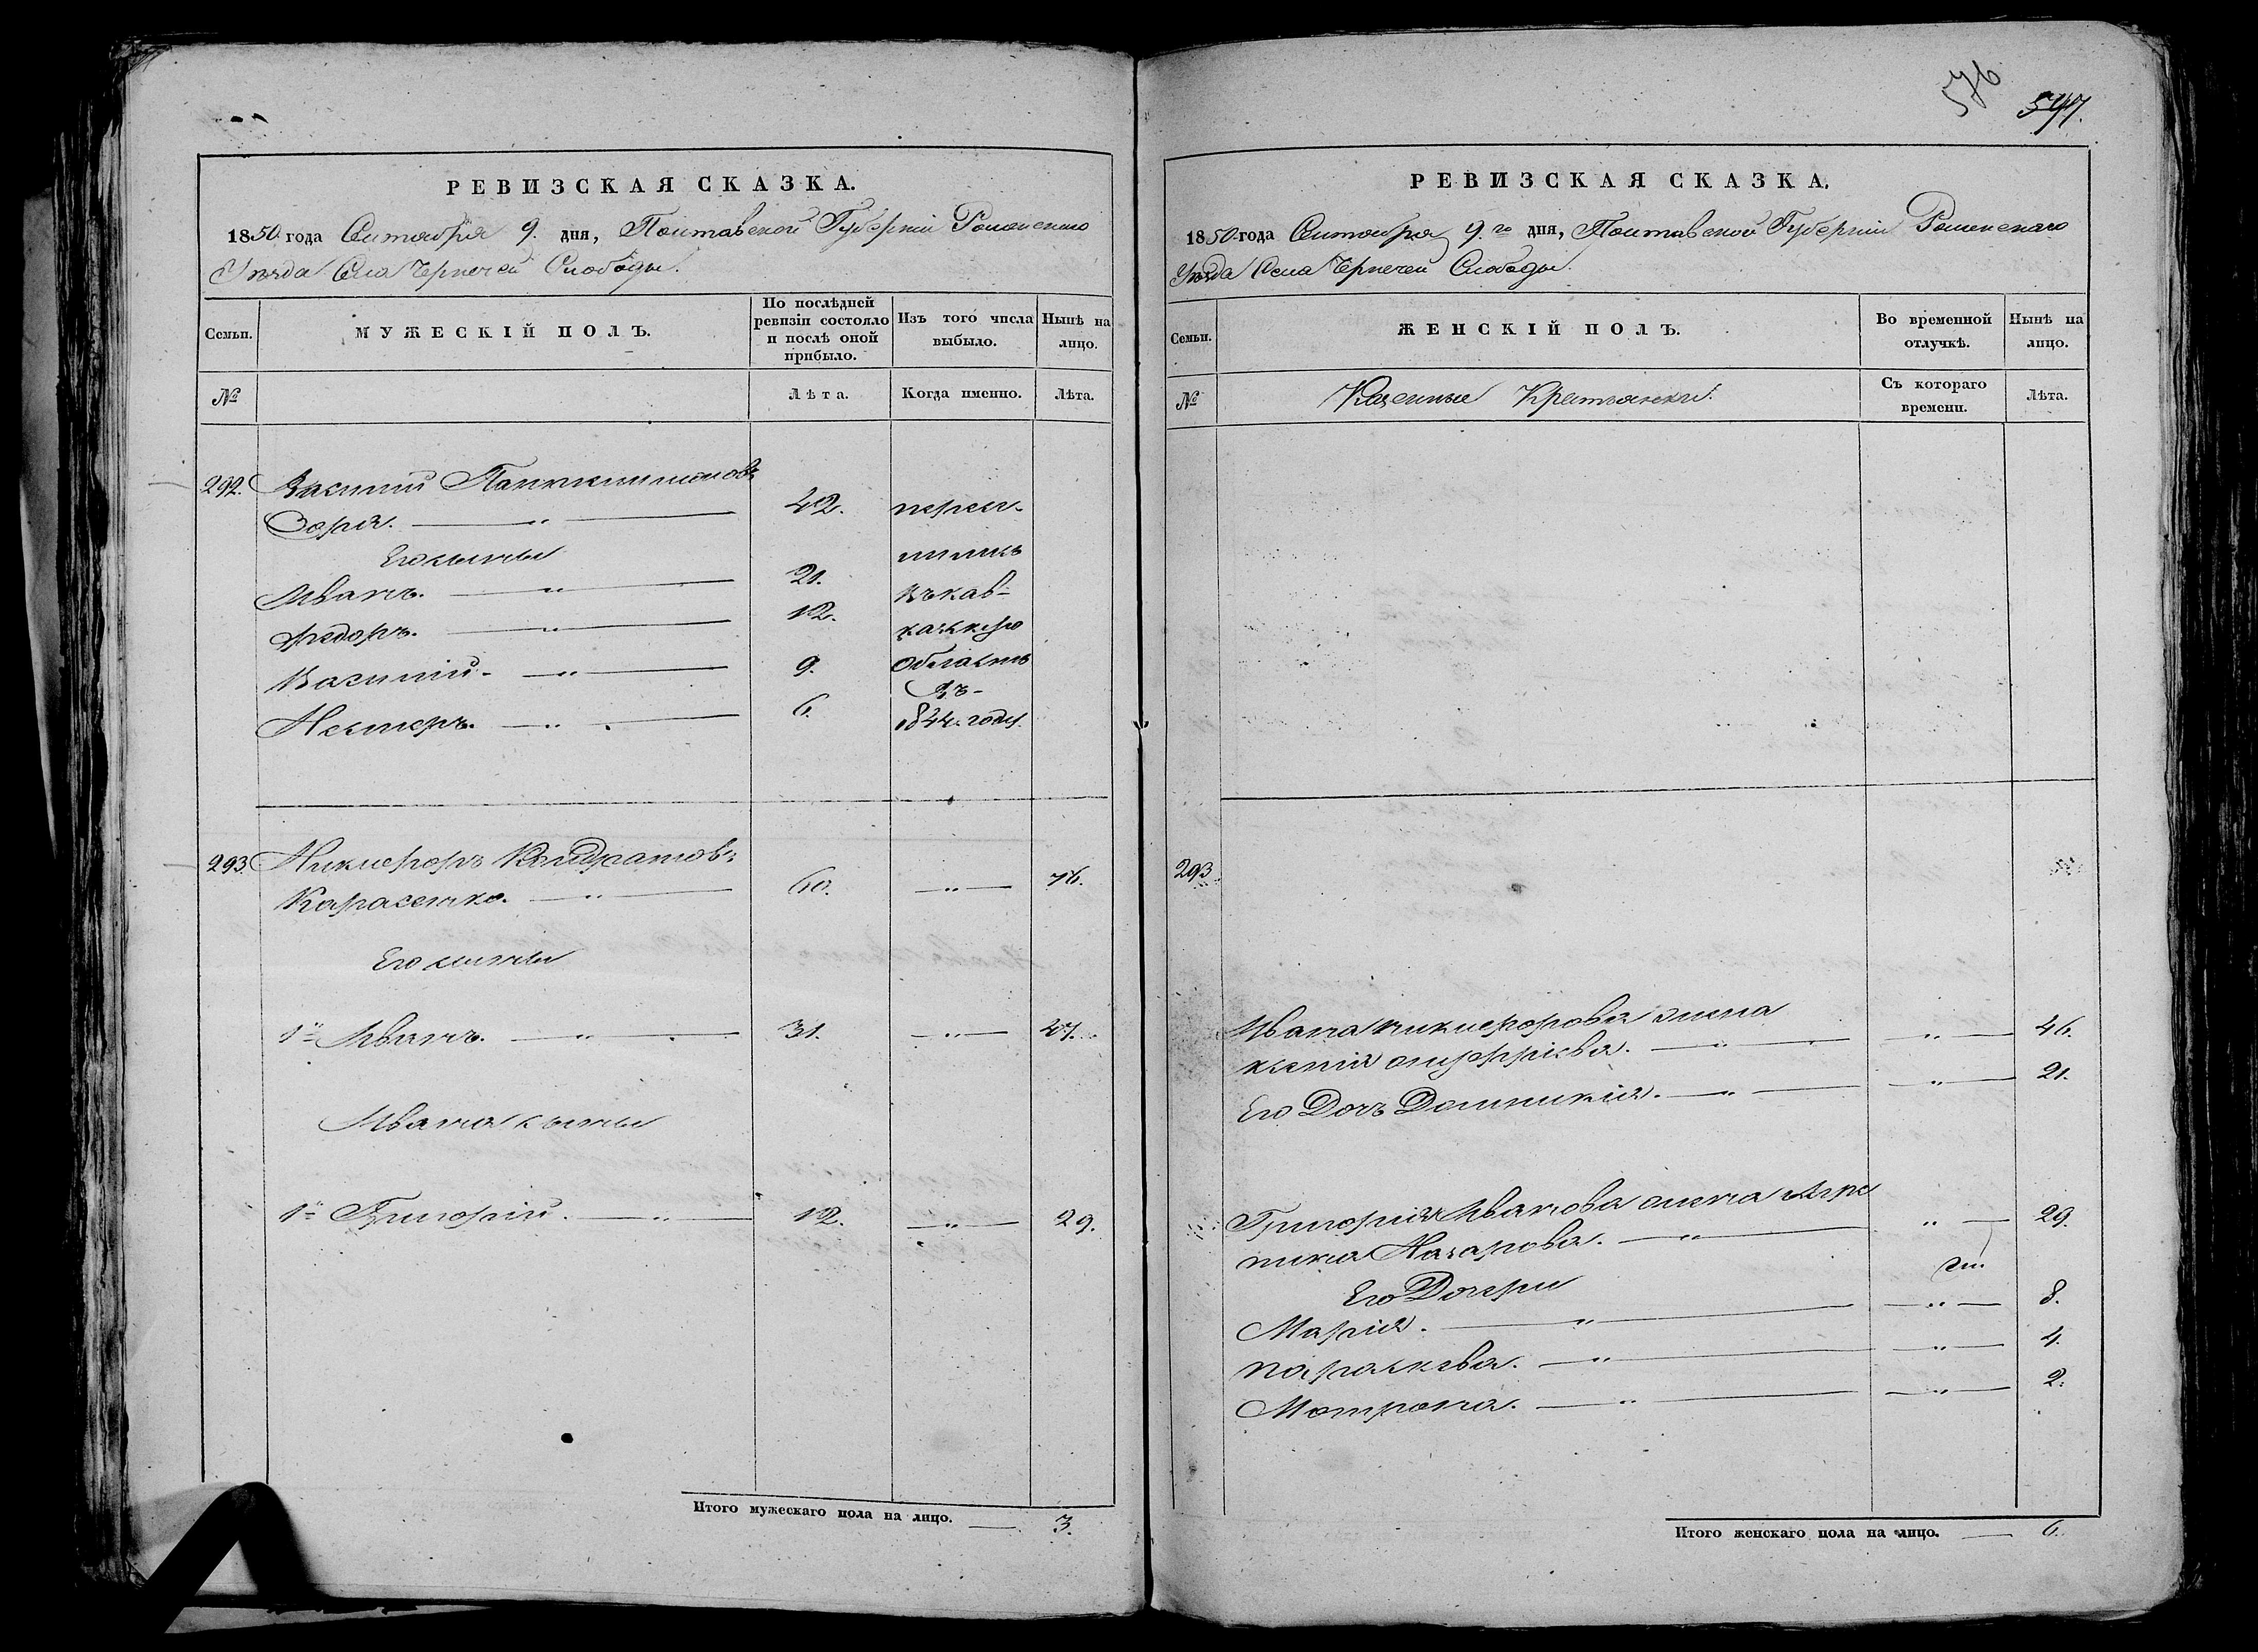 576
597.
РЕВИЗСКАЯ СКАЗКА.
1850 года Сентября 9. дня, Полтавской Губерніи Роменскаго
Уѣзда Села Чернечей Слободы.
Семьи.
МУЖЕСКІЙ ПОЛЪ.
По послѣдней ревизіи состояло и послѣ оной прибыло.
Изъ того числа выбыло.
Нынѣ на лицо.
№
Лѣта.
Когда именно.
Лѣта.
292. Василій Пантелимоновъ
Зоря. — „ — 42. пересе-
Его сыны лились
Иванъ. — „ — 21. въ кав-
Федоръ. — „ — 12. казскую
Василій. — „ — 9. область
въ
Нестеръ. — „ — 6. 1844. году.
293. Никифоръ Кондратовъ
Карасенко. — „ — 60. — „ — 76.
Его сыны
1й Иванъ. — „ — 31. — „ — 47.
Ивана сыны
1й Григорій. — „ — 12. — „ — 29.
Итого мужескаго пола на лицо. — 3.
РЕВИЗСКАЯ СКАЗКА.
1850 года Сентября 9.го дня, Полтавской Губерніи Роменскаго
Уѣзда Села Чернечей Слободы.
Семьи.
ЖЕНСКІЙ ПОЛЪ.
Во временной отлучкѣ.
Нынѣ на лицо.
№
Казенные Крестьянки.
Съ котораго времени.
Лѣта.
293
Ивана Никифорова жена
Ксенія Онуфріева. — „ — — „ — 46.
Его Дочь Домникія. — „ — — „ — 21.
Григорія Иванова жена Агре
пина Назарова. — „ — — „ — 29.
Его Дочери
Марія. — „ — — „ — 8.
Параскева. — „ — — „ — 4.
Мотрона. — „ — — „ — 2.
Итого женскаго пола на лицо. — 6.